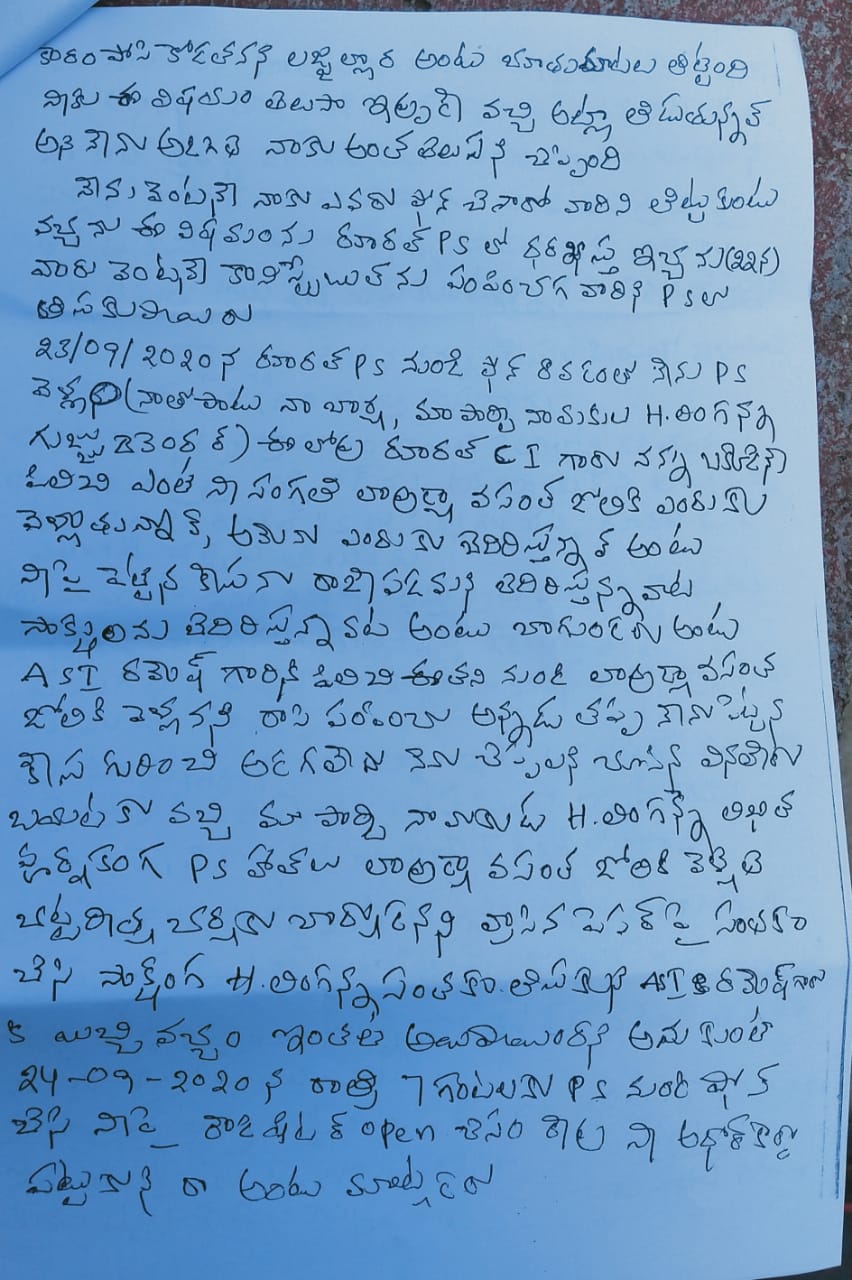 కారం పోసి కోడతనని అంటు బూతుమాటలు తిట్టింది
నీకు ఈ విషయం తెలుసా ఇక్కడి వచ్చి అట్లా తిడుతున్నావ్
అని నేను అడిగితె నాకు అంత తెలుసని చెప్పింది
నేను వెంటనె నాకు ఎవరు ఫోన్ చేసారో వారిని తిట్టుకుంటు
వచ్చను ఈ విషయంను రూరల్ PS లో దరఖాస్తు ఇచ్చను(22న)
వారు వెంటనె కానిస్టేబుల్ ను పంపించగ వారిని PSలు
తీసకుపొయిరు
23/09/2020న రూరల్ PS నుండి ఫోన్ రావడంతో నేను PS
వెళ్లా (నాతోపాటు నా బార్య, మా పార్టి నాయకుల H.లింగన్న
గుజ్జు దేవెందర్) ఈ లోపు రూరల్ CI గారు నన్ను ఒక్కడినే
పిలిచి ఎంత నీ సంగతి లావణ్యా వసంత జోలికి ఎందుకు
వెళ్లాతున్నావ్, అమెను ఎందుకు బెదిరిస్తున్నావ్ అంటు
నీపై పెట్టిన కేసును రాజీపడమని బెదిరిస్తున్నావట
సాక్షులను బెదిరిస్తన్నావట అంటు బాగుండదు అంటు
ASI రమెష్ గారిని పిలిచి ఈతని నుండి లావణ్యా వసంత
జోలికి వెళ్లనని రాసి పంపించు అన్నాడు తప్ప నేను పెట్టిన
కేసు గురించి అడగలేదు నేను చెప్పాలని చూసిన వినలేదు
బయటకు వచ్చి మా పార్టి నాయయుడు H.లింగన్న లిఖిత
పూర్వకంగ PS లావణ్యా వసంత జోలికి వెళ్లితె
చట్టరిత్య చర్యకు బాద్యుడనని వ్రాసిన పెపర్ పై సంతకం
చేసి సాక్షింగ H.లింగన్న సంతకం తీసుకుని ASI రమెష్ గారి
కి యిచ్చి వచ్చం ఇంతటి అయిపొయిందని అనుకుంటె
24-09-2020 న రాత్రి 7 గంటలకు PS నుండి ఫోన్
చేసి నీపై రౌడిషీటర్ open చేసం రేపు నీ అధార్ కార్డు
పట్టుకుని రా అంటు మాట్లడరు